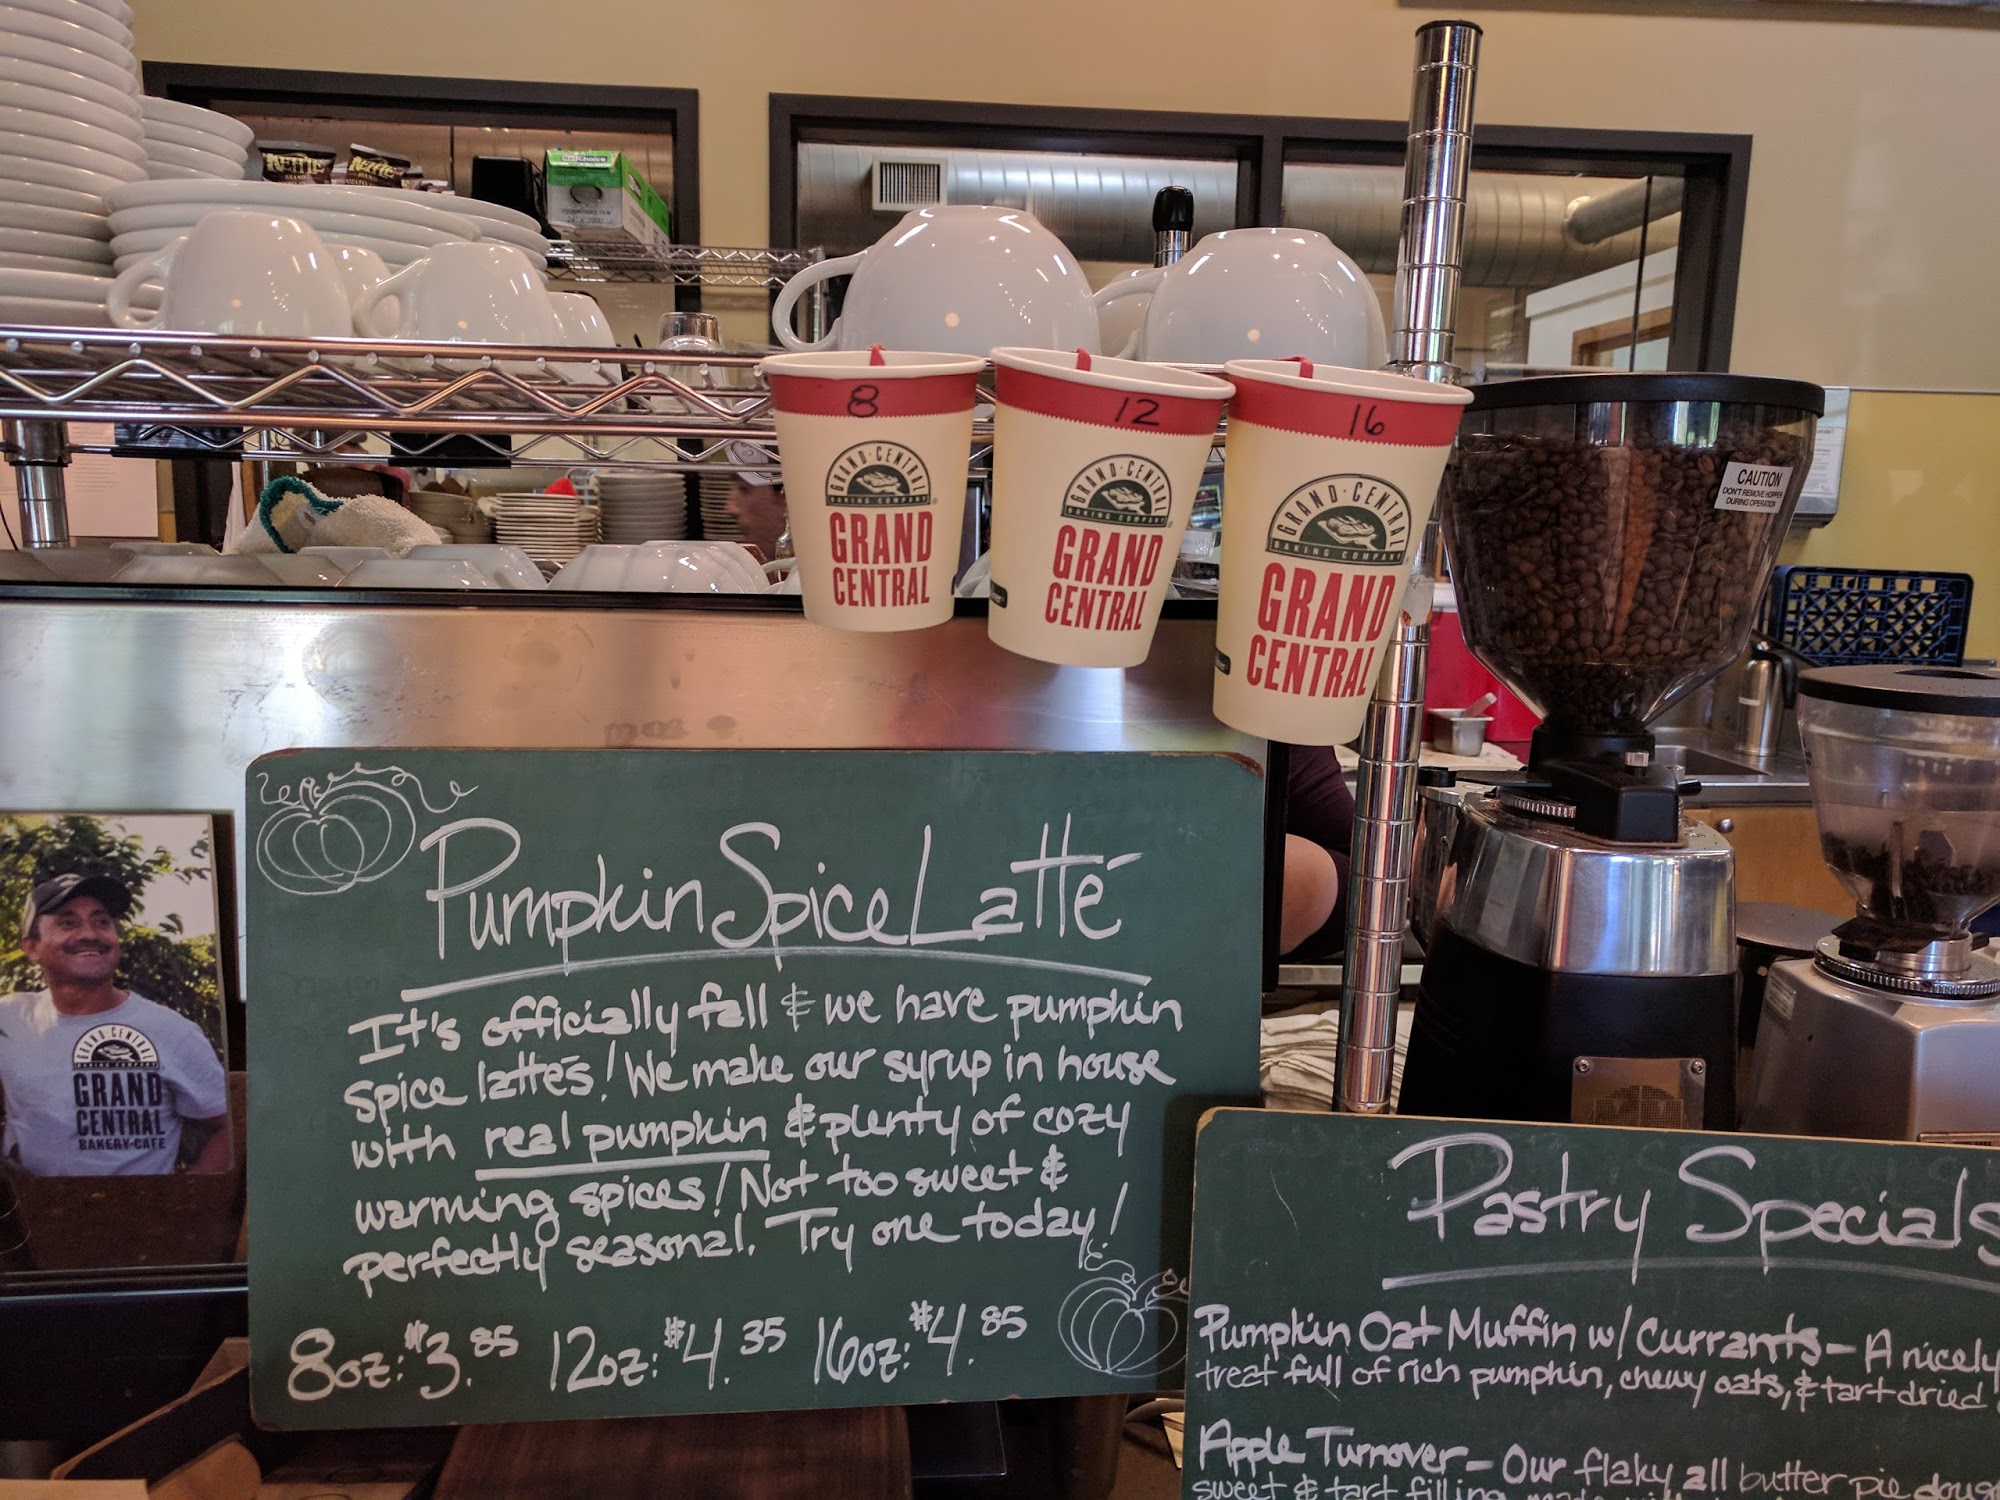 KETTLE
BRAND
KETTLE
BRAND
8
12
16
GRAND · CENTRAL
BAKING COMPANY
GRAND
CENTRAL
GRAND · CENTRAL
BAKING COMPANY
GRAND
CENTRAL
GRAND · CENTRAL
BAKING COMPANY
GRAND
CENTRAL
CAUTION
DON'T REMOVE HOPPER
DURING OPERATION
GRAND · CENTRAL
BAKING COMPANY
GRAND
CENTRAL
BAKERY·CAFE
Pumpkin Spice Latté
It's officially fall & we have pumpkin
spice lattés! We make our syrup in house
with real pumpkin & plenty of cozy
warming spices! Not too sweet &
perfectly seasonal. Try one today!
8oz: $3.85 12oz: $4.35 16oz: $4.85
Pastry Specials
Pumpkin Oat Muffin w/ Currants – A nicely
treat full of rich pumpkin, chewy oats, & tart dried
Apple Turnover – Our flaky all butter pie doug
sweet & tart filling